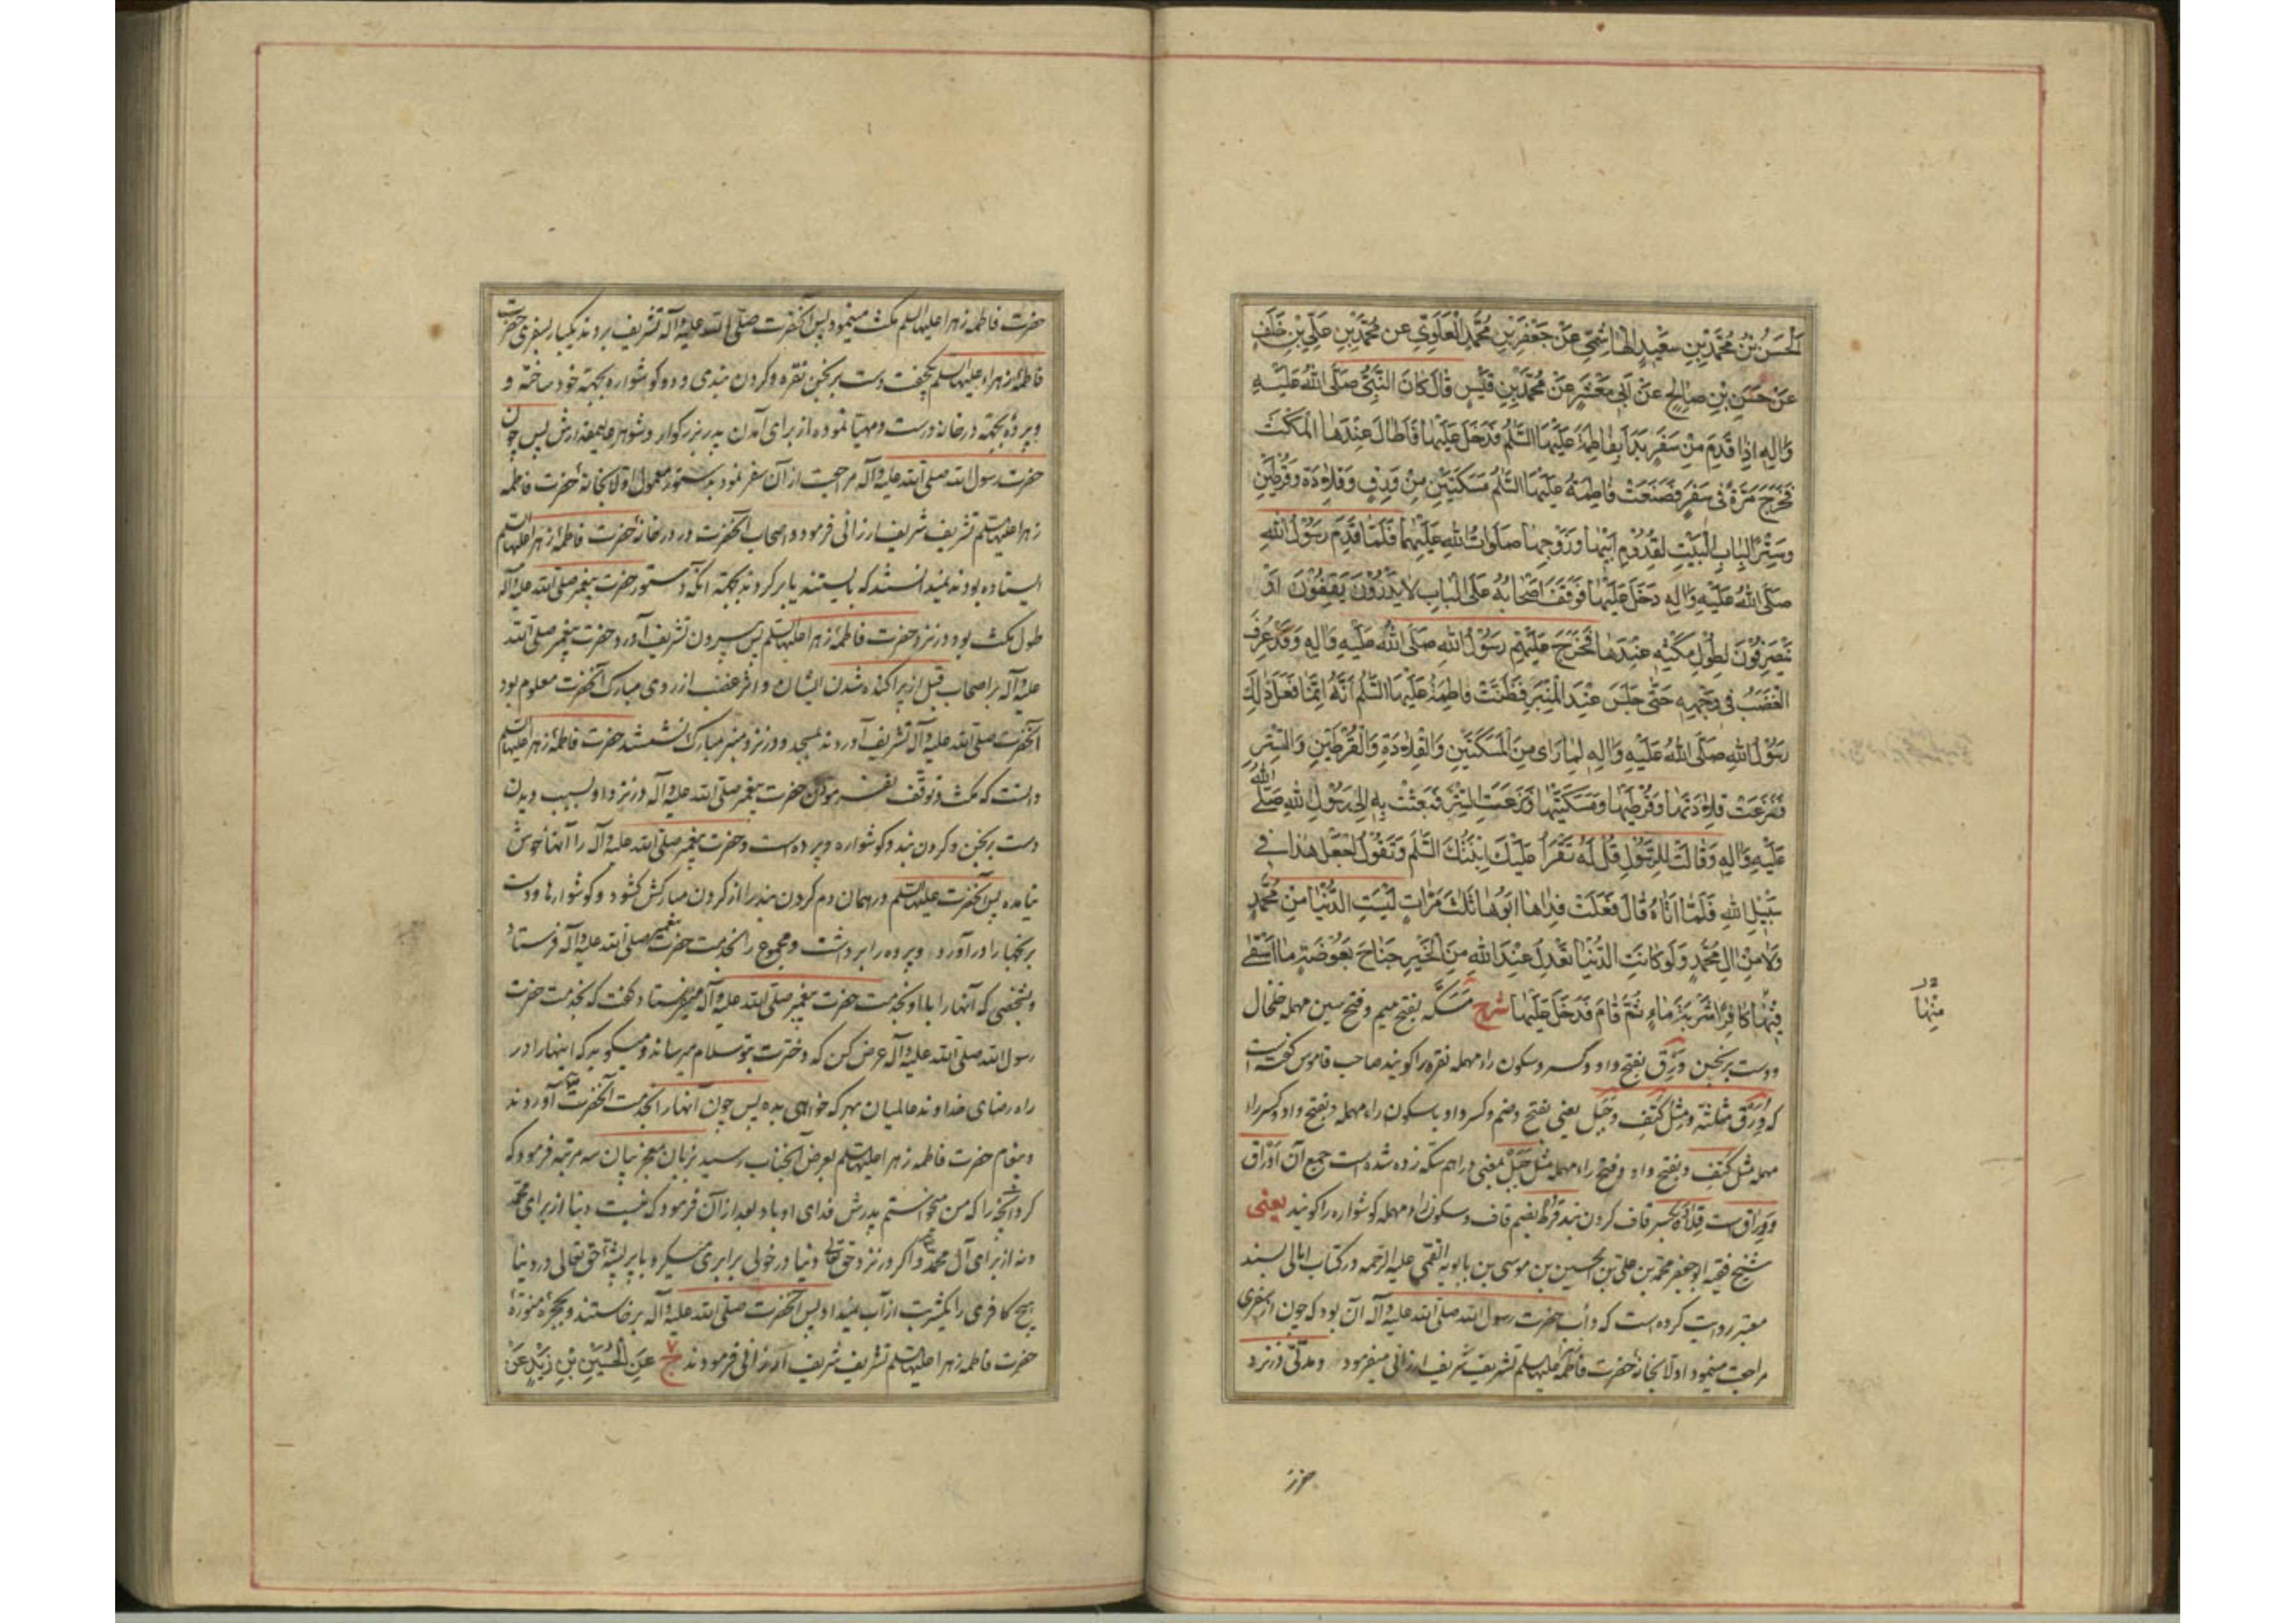 الْحَسَنُ بْنُ مُحَمَّدِ بْنِ سَعِيدٍ الْهَاشِمِيِّ عَنْ جَعْفَرِ بْنِ مُحَمَّدٍ الْعَلَوِيِّ عَنْ مُحَمَّدِ بْنِ عَلِيِّ بْنِ خَلَفٍ
عَنْ حَسَنِ بْنِ صَالِحٍ عَنْ أَبِي مَعْشَرٍ عَنْ مُحَمَّدِ بْنِ قَيْسٍ قَالَ كَانَ النَّبِيُّ صَلَّى اللَّهُ عَلَيْهِ
وَآلِهِ إِذَا قَدِمَ مِنْ سَفَرٍ بَدَأَ بِفَاطِمَةَ عَلَيْهَا السَّلَمُ فَدَخَلَ عَلَيْهَا فَأَطَالَ عِنْدَهَا الْمَكْثَ
فَخَرَجَ مَرَّةً فِي سَفَرٍ فَصَنَعَتْ فَاطِمَةُ عَلَيْهَا السَّلَمُ مَسَكَتَيْنِ مِنْ وَرِقٍ وَقِلَادَةً وَقُرْطَيْنِ
وَسِتْرًا لِبَابِ الْبَيْتِ لِقُدُومِ أَبِيهَا وَزَوْجِهَا صَلَوَاتُ اللَّهِ عَلَيْهِمَا فَلَمَّا قَدِمَ رَسُولُ اللَّهِ
صَلَّى اللَّهُ عَلَيْهِ وَآلِهِ دَخَلَ عَلَيْهَا فَوَقَفَ أَصْحَابُهُ عَلَى الْبَابِ لَا يَدْرُونَ يَقِفُونَ أَوْ
يَنْصَرِفُونَ لِطُولِ مَكْثِهِ عِنْدَهَا فَخَرَجَ عَلَيْهِمْ رَسُولُ اللَّهِ صَلَّى اللَّهُ عَلَيْهِ وَآلِهِ وَقَدْ عُرِفَ
الْغَضَبُ فِي وَجْهِهِ حَتَّى جَلَسَ عِنْدَ الْمِنْبَرِ فَظَنَّتْ فَاطِمَةُ عَلَيْهَا السَّلَمُ أَنَّهُ إِنَّمَا فَعَلَ ذَلِكَ
رَسُولُ اللَّهِ صَلَّى اللَّهُ عَلَيْهِ وَآلِهِ لِمَا رَأَى مِنَ الْمَسَكَتَيْنِ وَالْقِلَادَةِ وَالْقُرْطَيْنِ وَالسِّتْرِ
فَنَزَعَتْ قِلَادَتَهَا وَقُرْطَيْهَا وَمَسَكَتَيْهَا وَنَزَعَتِ السِّتْرَ فَبَعَثَتْ بِهِ إِلَى رَسُولِ اللَّهِ صَلَّى اللَّهُ
عَلَيْهِ وَآلِهِ وَقَالَتْ لِلرَّسُولِ قُلْ لَهُ تَقْرَأُ عَلَيْكَ ابْنَتُكَ السَّلَمَ وَتَقُولُ اجْعَلْ هَذَا فِي
سَبِيلِ اللَّهِ فَلَمَّا أَتَاهُ قَالَ فَعَلَتْ فِدَاهَا أَبُوهَا ثَلَثَ مَرَّاتٍ لَيْسَتِ الدُّنْيَا مِنْ مُحَمَّدٍ
وَلَا مِنْ آلِ مُحَمَّدٍ وَلَوْ كَانَتِ الدُّنْيَا تَعْدِلُ عِنْدَ اللَّهِ مِنَ الْخَيْرِ جَنَاحَ بَعُوضَةٍ مَا أَسْقَى
فِيهَا كَافِرًا شَرْبَةَ مَاءٍ ثُمَّ قَامَ فَدَخَلَ عَلَيْهَا شرح مَسَكَه بفتح میم و فتح سین مهمله خلخال
ودست برنجن وَرِق بفتح واو و کسر و سکون راء مهمله نقره را کویند صاحب قاموس کفته است
که وَرِق مثلثة ومثل کَتِف وجَبَل یعنی بفتح وضم وکسر واو با سکون راء مهمله وبفتح واو وکسر راء
مهمله مثل کَتِف وبفتح واو وفتح راء مهمله مثل جَبَل بمعنی دراهم سکه زده شده است جمع آن اَوْرَاق
ووِراق است قِلَادَة بکسر قاف کردن بند قُرْط بضم قاف وسکون راء مهمله کوشواره را کویند یعنی
شیخ فقیه ابو جعفر محمد بن علی بن الحسین بن موسی بن بابویه القمی علیه الرحمه در کتاب امالی بسند
معتبر روایت کرده است که دأب حضرت رسول الله صلی الله علیه وآله آن بود که چون از سفری
مراجعت مینمود اولا بخانهٔ حضرت فاطمه علیها السلم تشریف شریف ارزانی میفرمود ومدتی در نزد
مِنْهَا
حضرت
حضرت فاطمه زهرا علیها السلم مکث مینمود پس آنحضرت صلی الله علیه وآله تشریف بردند یکبار بسفری حضرت
فاطمهٔ زهراء علیها السلم یکجفت دست برنجن نقره وکردن بندی ودو کوشواره بجهته خود ساخته و
وپردهٔ بجهته در خانه درست ومهیا نموده از برای آمدن پدر بزرکوار وشوهر عالیمقدارش پس چون
حضرت رسول الله صلی الله علیه وآله مراجعت از آن سفر نمود بدستور معمول اولا بخانهٔ حضرت فاطمه
زهرا علیها السلم تشریف شریف ارزانی فرمود واصحاب آنحضرت در در خانهٔ حضرت فاطمهٔ زهرا علیها السلم
ایستاده بودند نمیدانستند که بایستند یا برکردند بجهته آنکه دستور حضرت پیغمبر صلی الله علیه وآله
طول مکث بود در نزد حضرت فاطمهٔ زهرا علیها السلم پس بیرون تشریف آورد حضرت پیغمبر صلی الله
علیه وآله بر اصحاب قبل از پراکنده شدن ایشان واثر غضب از روی مبارک آنحضرت معلوم بود
آنحضرت صلی الله علیه وآله تشریف آوردند بمسجد ودر نزد منبر مبارک نشستند حضرت فاطمهٔ زهرا علیها السلم
دانست که مکث وتوقف نفرمودن حضرت پیغمبر صلی الله علیه وآله در نزد او بسبب دیدن
دست برنجن وکردن بند وکوشواره وپرده است وحضرت پیغمبر صلی الله علیه وآله را آنها خوش
نیامده پس آنحضرت علیها السلم در همان دم کردن بند را از کردن مبارکش کشود وکوشوارها ودست
برنجها را در آورد وپرده را برداشت ومجموع را بخدمت حضرت پیغمبر صلی الله علیه وآله فرستاد
وبشخصی که آنها را با او بخدمت حضرت پیغمبر صلی الله علیه وآله میفرستاد کفت که بخدمت حضرت
رسول الله صلی الله علیه وآله عرض کن که دخترت بتو سلام میرساند ومیکوید که اینها را در
راه رضای خداوند عالمیان بهر که خواهی بده پس چون آنها را بخدمت آنحضرت آوردند
وپیغام حضرت فاطمه زهرا علیها السلم بعرض آنجناب رسید بزبان معجز بیان سه مرتبه فرمود که
کرد آنچه را که من میخواستم پدرش فدای او باد بعد از آن فرمود که نیست دنیا از برای محمد
ونه از برای آل محمد واکر در نزد حق تعالی دنیا در خوبی برابری میکرد با پر پشهٔ حق تعالی در دنیا
هیچ کافری را یکشربت از آب نمیداد پس آنحضرت صلی الله علیه وآله برخاستند وبحجرهٔ منورهٔ
حضرت فاطمه زهرا علیها السلم تشریف شریف ارزانی فرمودند ح ۷ عَنِ الْحُسَيْنِ بْنِ زَيْدٍ عَنْ